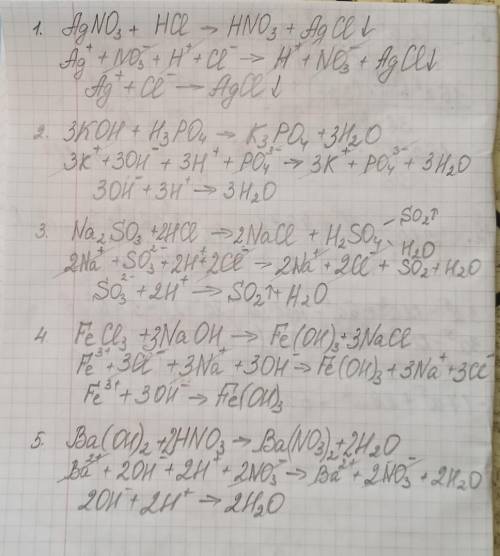 1. AgNO₃ + HCl → HNO₃ + AgCl↓
Ag⁺ + NO₃⁻ + H⁺ + Cl⁻ → H⁺ + NO₃⁻ + AgCl↓
Ag⁺ + Cl⁻ → AgCl↓
2. 3KOH + H₃PO₄ → K₃PO₄ + 3H₂O
3K⁺ + 3OH⁻ + 3H⁺ + PO₄³⁻ → 3K⁺ + PO₄³⁻ + 3H₂O
3OH⁻ + 3H⁺ → 3H₂O
SO₂↑
3. Na₂SO₃ + 2HCl → 2NaCl + H₂SO₄
H₂O
2Na⁺ + SO₃²⁻ + 2H⁺ + 2Cl⁻ → 2Na⁺ + 2Cl⁻ + SO₂ + H₂O
SO₃²⁻ + 2H⁺ → SO₂↑ + H₂O
4 FeCl₃ + 3NaOH → Fe(OH)₃ + 3NaCl
Fe³⁺ + 3Cl⁻ + 3Na⁺ + 3OH⁻ → Fe(OH)₃ + 3Na⁺ + 3Cl⁻
Fe³⁺ + 3OH⁻ → Fe(OH)₃
5. Ba(OH)₂ + 2HNO₃ → Ba(NO₃)₂ + 2H₂O
Ba²⁺ + 2OH⁻ + 2H⁺ + 2NO₃⁻ → Ba²⁺ + 2NO₃⁻ + 2H₂O
2OH⁻ + 2H⁺ → 2H₂O